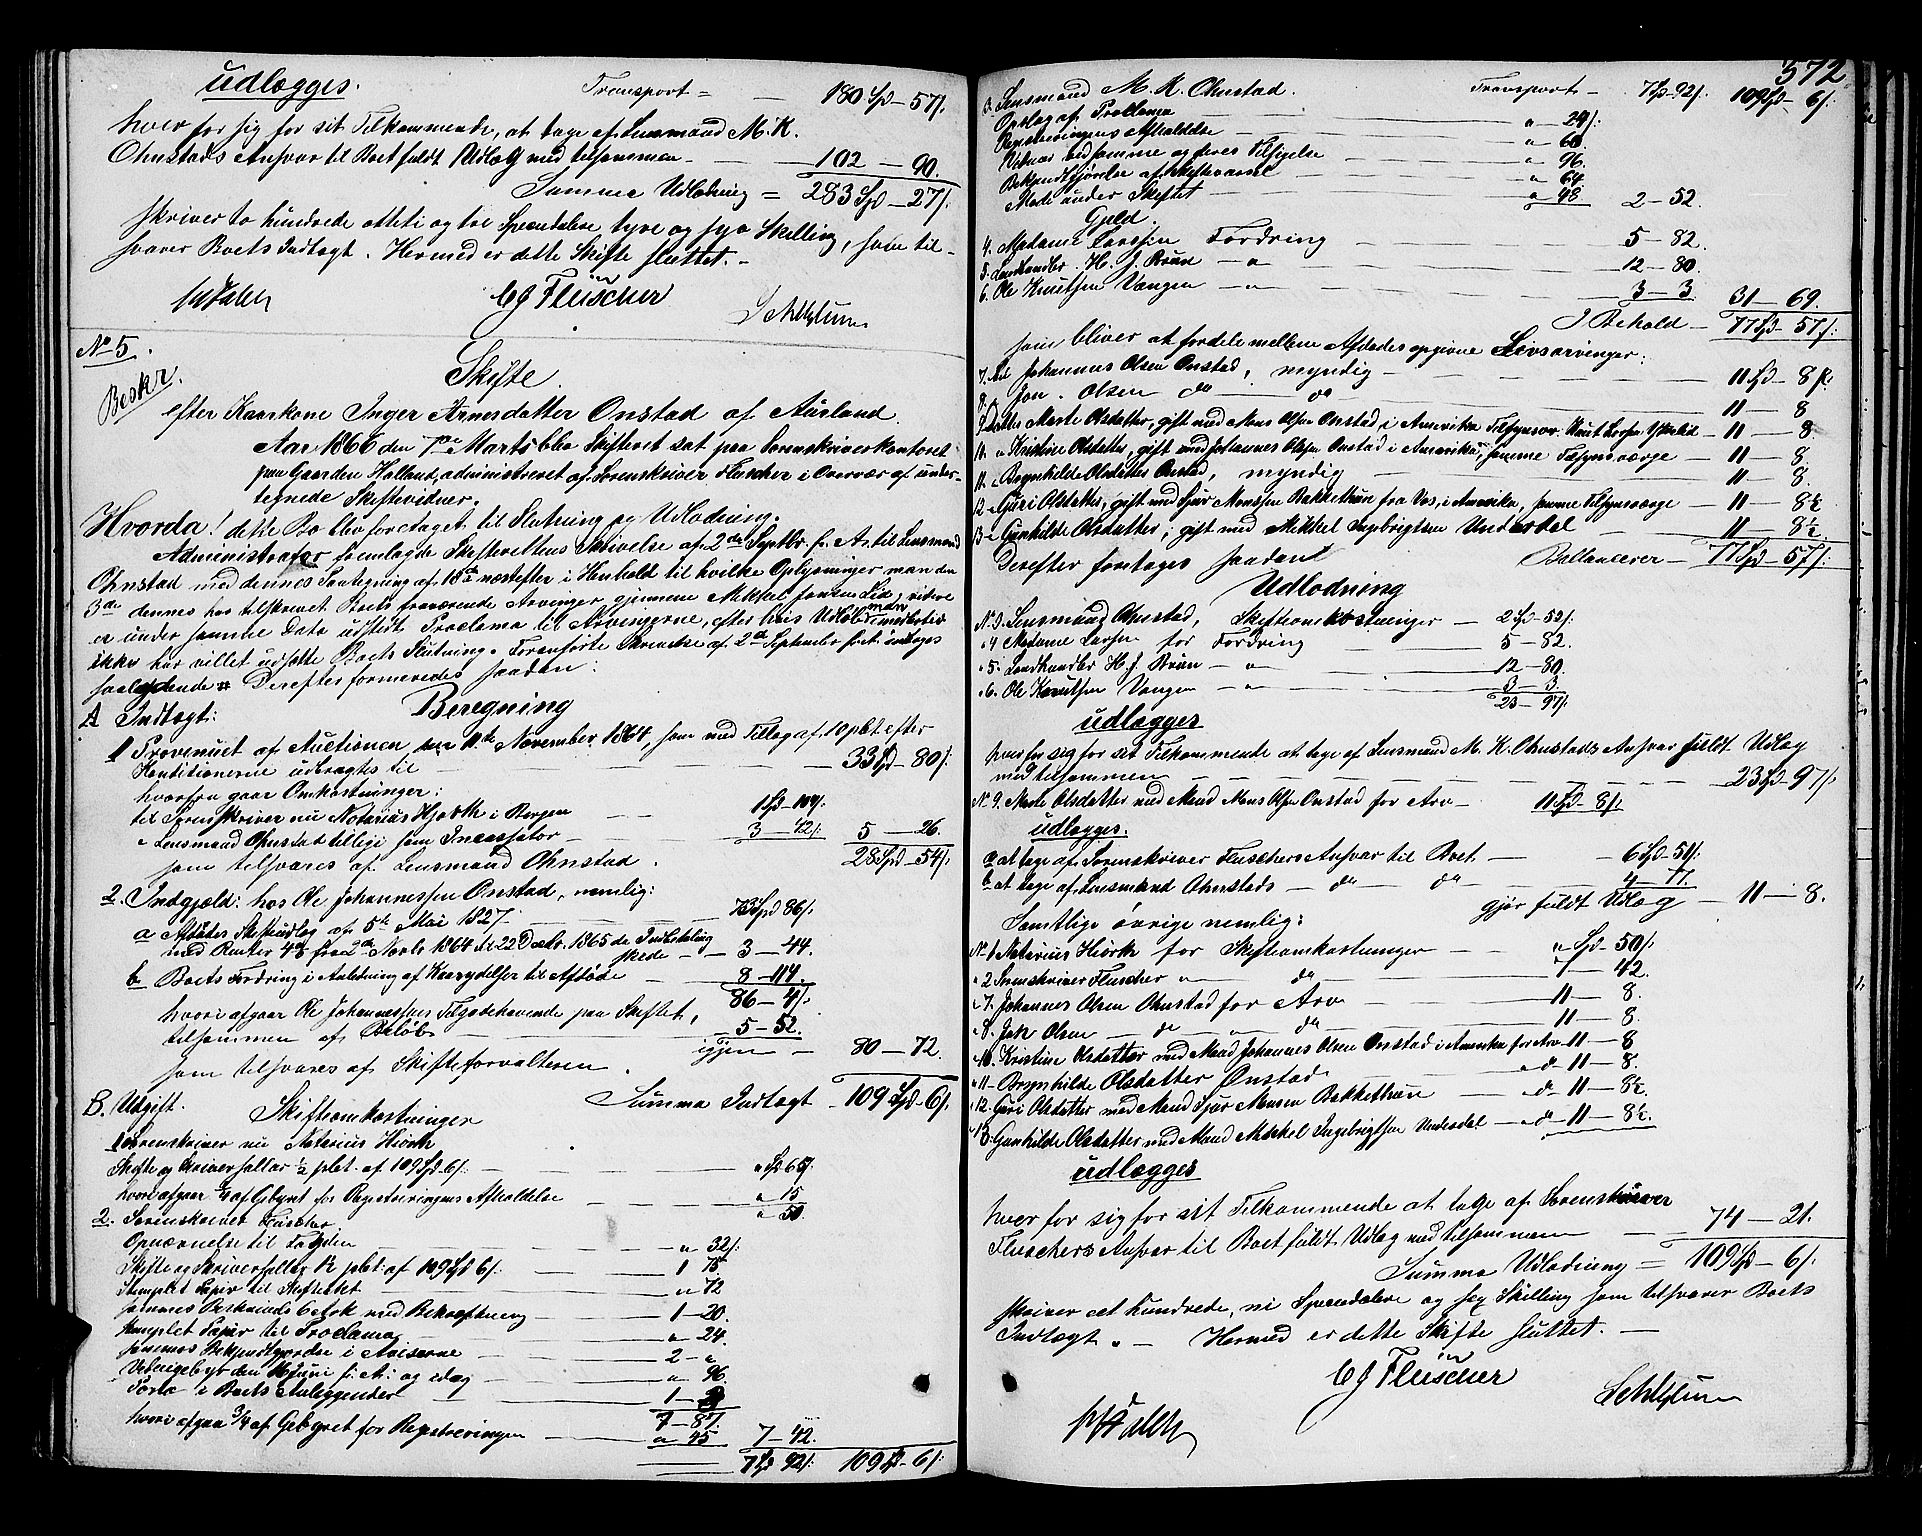 udlægges.
Transport = — 180 Spd — 57 ß.
hver for sig for sit Tilkommende, at tage af Lensmand M. K.
Ohnstads Ansvar til Boet fuldt Udlæg med tilsammen — 102 — 90.
Summa Udlodning = 283 Spd — 27 ß.
skriver to hundrede otteti og tre Speciedaler, tyve og syv Skilling, som til-
svarer Boets Indtægt. Hermed er dette Skifte sluttet. —
CJ Fleischer
No 5.
Beskr.
Skifte
efter Kaarkone Inger Arnesdatter Onstad af Aurland.
Aar 1866 den 7de Marts blev Skifteret sat paa Sorenskriverkontoret
paa Gaarden Holland, administreret af Sorenskriver Fleischer i Overvær af under-
tegnede Skiftevidner.
Hvorda! dette Bo blev foretaget til Slutning og Udlodning.
Administrator fremlagde Skifterettens Skrivelse af 2de Septbr. f. A. til Lensmand
Ohnstad med dennes Paategning af 18de næstefter i Henhold til hvilke Oplysninger man den
3de dennes har tilskrevet Boets fraværende Arvinger gjennem Mikkel Jansen Lid, videre
er under samme Dato udstedt Proclama til Arvingerne, efter hvis Udløb man imidlertid
ikke har villet udsætte Boets Slutning. Foranførte Skrivelse af 2de September fort. indtages
saalydende # Derefter formeredes saadan:
Beregning
A Indtægt:
1 Provenuet af Auctionen den 11te November 1864, som med Tillæg af 10 pCt efter
Konditionerne udbragtes til — — — 33 Spd — 80 ß.
hvorfra gaar Omkostninger:
til Sorenskriver nu Notarius Hjorth i Bergen — — 1 Spd — 104 ß.
" Lensmand Ohnstad tillige som Incassator — 3 — 42 ß. 5 — 26.
som tilsvares af Lensmand Ohnstad. 28 Spd — 54 ß.
2. Indgjæld: hos Ole Johannessen Onstad, nemlig:
a Afdødes Skifteudlæg af 5te Mai 1827 — 73 Spd 86 ß.
med Renter 4% fra 2de Novbr 1864 til 22 Decbr. 1865 da Indbetaling
skede — 3 — 44.
b Boets Fordring i Anledning af Kaarydelser til Afdøde — 8 — 114.
86 — 4 ß.
hvori afgaar Ole Johannessens Tilgodehavende paa Skiftet,
tilsammen af Beløb — 5 — 52.
igjen — 80 — 72.
som tilsvares af Skifteforvalteren.
Summa Indtægt — 109 Spd — 6 ß.
B. Udgift.
Skifteomkostninger
1 Sorenskriver nu Notarius Hiorth
Skifte og Skriversalær ½ pCt. af 109 Spd 6 ß. — " Spd 65 ß.
hvori afgaar ¼ af Gebyret for Registreringens Afholdelse — " 15
" 50.
2. Sorenskriver Fleischer
Opnævnelse til Fogden — " 32 ß.
Skifte og Skriversalær 1½ pCt. af 109 Spd 6 ß. — 1 75
Stemplet Papir til Skiftebrevet — " 72
sammes Beskrivende 6 Ark med Bekræftning — 1 — 20.
stemplet Papir til Proclama — " 24.
sammes Bekjendtgjørelse i Aviserne — 2 — "
Vidnegebyr den Juni f. A. og idag — " 96.
Porto i Boets Anliggender — 1 —
7 — 87.
hvori afgaar 3/4 af Gebyret for Registreringen — " 45 7 — 42.
7 Spd 92 ß. 109 Spd — 6 ß.
572
3. Lensmand M. K. Ohnstad. Transport — 7 Spd — 92 ß. 109 Spd — 6 ß.
Opslag af Proclama — " — 24 ß.
Registreringens Afholdelse — " — 60
Vidner ved samme og deres Tilsigelse — " 96.
Bekjendtgjørelse af Skiftevarsel — " 64
Møde under Skiftet — " 48. 2 — 52.
Gjeld.
4. Madame Larssen Fordring — 5 — 82.
5. Landhandler H. J. Brun — " — 12 — 80.
6. Ole Knutsen Vangen — " — 3 — 3 31 — 69.
I Behold — 77 Spd — 57 ß.
som bliver at fordele mellem Afdødes opgivne Livsarvinger:
7. Søn Johannes Olsen Onstad, myndig — 11 Spd — 8 ß.
8. " Jon Olsen do — do — 11 — 8
9. Datter Marte Olsdatter, gift med Mons Olsen Onstad i Amerika Tilsynsv. Knut Larsen Ytrelid — 11 — 8.
10. " Kristine Olsdatter, gift med Johannes Olsen Onstad i Amerika, samme Tilsynsværge — 11 — 8
11. " Brynhilde Olsdatter Onstad, myndig — 11 — 8.
12 " Guri Olsdatter, gift med Sjur Monssen Bakkethun fra Vos, i Amerika, samme Tilsynsværge — 11 — 8½
13 " Gunhilde Olsdatter, gift med Mikkel Ingebrigtsen Underdal — 11 — 8½.
Ballancerer — 77 Spd — 57 ß.
Derefter foretages saadan
Udlodning
No 3. Lensmand Ohnstad, Skifteomkostninger — 2 Spd — 52 ß.
" 4 Madame Larsen for Fordring — 5 — 82.
" 5. Landhandler H. J. Brun — " — 12 — 80.
" 6. Ole Knutsen Vangen — " — 3 — 3.
23 — 97 ß.
udlægges
hver for sig for sit Tilkommende at tage af Lensmand M. K. Ohnstads Ansvar fuldt Udlæg
med tilsammen — 23 Spd — 97 ß.
No 9. Marte Olsdatter med Mand Mons Olsen Onstad for Arv — 11 Spd — 8 ß.
udlægges.
a at tage af Sorenskriver Fleischers Ansvar til Boet — 6 Spd — 51 ß.
b at tage af Lensmand Ohnstads — do — do — 4 — 77.
gjør fuldt Udlæg — 11 — 8.
Samtlige øvrige nemlig:
No 1 Notarius Hiorth for Skifteomkostninger — " Spd — 50 ß.
" 2 Sorenskriver Fleischer " do — 7 — 42.
" 7. Johannes Olsen Ohnstad for Arv — 11 — 8.
" 8. Jon Olsen — do " do — 11 — 8.
" 10. Kristine Olsdatter med Mand Johannes Olsen Onstad i Amerika for Arv — 11 — 8
" 11 — Brynhilde Olsdatter Onstad — " do — 11 — 8.
" 12. Guri Olsdatter med Mand Sjur Monsen Bakkethun — " do — 11 — 8½.
" 13. Gunhilde Olsdatter med Mand Mikkel Ingebrigtsen Underdal — " do — 11 — 8½.
udlægges
hver for sig for sit Tilkommende at tage af Sorenskriver
Fleischers Ansvar til Boet fuldt Udlæg med tilsammen — 74 — 21.
Summa Udlodning = 109 Spd — 6 ß.
skriver eet Hundrede, ni Speciedaler og sex Skilling som tilsvarer Boets
Indtægt. — Hermed er dette Skifte sluttet. —
CJ Fleischer